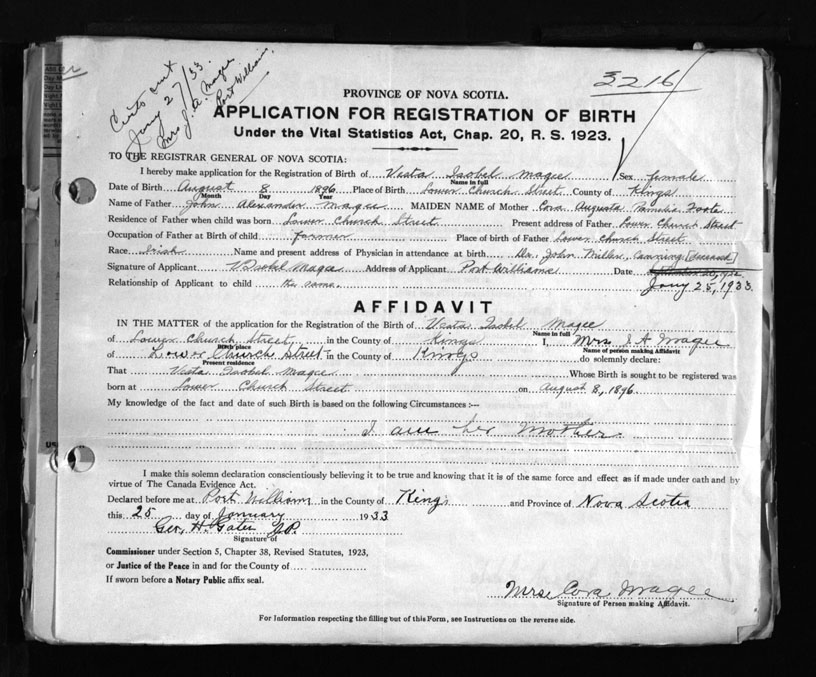 Certs out
Jany 27/33
Mrs J. A. Magee
Port Williams
3216
PROVINCE OF NOVA SCOTIA.
APPLICATION FOR REGISTRATION OF BIRTH
Under the Vital Statistics Act, Chap. 20, R. S. 1923.
TO THE REGISTRAR GENERAL OF NOVA SCOTIA:
I hereby make application for the Registration of Birth of Vesta Isobel Magee Sex female
Name in full
Date of Birth August 8 1896 Place of Birth Lower Church Street County of Kings
Month Day Year
Name of Father John Alexander Magee MAIDEN NAME of Mother Cora Augusta Foote
Residence of Father when child was born Lower Church Street Present address of Father Lower Church Street
Occupation of Father at Birth of child farmer Place of birth of Father Lower Church Street
Race Irish Name and present address of Physician in attendance at birth Dr. John Miller, Canning [deceased]
Signature of Applicant V Isobel Magee Address of Applicant Port Williams Date
Jany 25, 1933.
Relationship of Applicant to child the same.
AFFIDAVIT
IN THE MATTER of the application for the Registration of the Birth of Vesta Isobel Magee
Name in full
of Lower Church Street, in the County of Kings I, Mrs. J A Magee
Birth place Name of person making Affidavit
of Lower Church Street in the County of Kings do solemnly declare:
Present residence
That Vesta Isobel Magee Whose Birth is sought to be registered was
born at Lower Church Street on August 8, 1896.
My knowledge of the fact and date of such Birth is based on the following Circumstances :—
I am her Mother.
I make this solemn declaration conscientiously believing it to be true and knowing that it is of the same force and effect as if made under oath and by
virtue of The Canada Evidence Act.
Declared before me at Port Williams in the County of Kings and Province of Nova Scotia
this 25 day of January 1933
Geo, H. Gates J.P.
Signature of
Commissioner under Section 5, Chapter 38, Revised Statutes, 1923,
or Justice of the Peace in and for the County of
If sworn before a Notary Public affix seal.
Mrs. Cora Magee
Signature of Person making Affidavit.
For Information respecting the filling out of this Form, see Instructions on the reverse side.